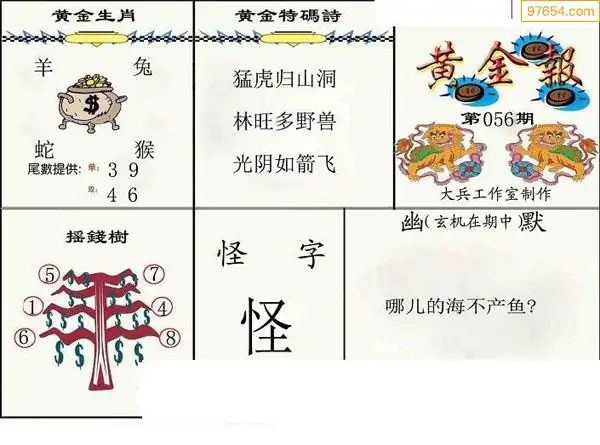 97654.com
黄金生肖
羊 兔
蛇 猴
尾數提供: 单: 3 9
双: 4 6
黄金特碼詩
猛虎归山洞
林旺多野兽
光阴如箭飞
黄金報
第056期
大兵工作室制作
摇錢樹
⑤ ⑦
① ④
⑥ ⑧
怪 字
怪
幽(玄机在期中)默
哪儿的海不产鱼?